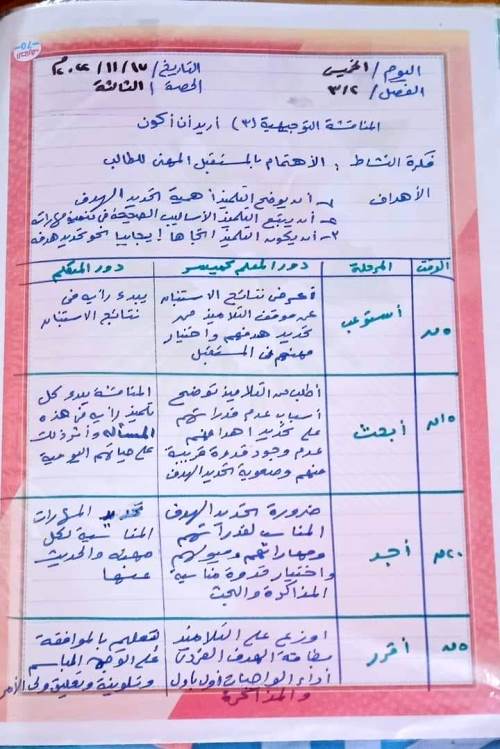 اليوم / الخميس
التاريخ / ١٧ / ١١ / ٢٠٢٢م
الفصل / ٣/٢
الحصة / الثالثة
المناقشة التوجيهية (٣) أريد أن أكون
فكرة النشاط : الأهتمام بالمستقبل المهنى للطالب
الأهداف
١- أن يوضح التلميذ أهمية تحديد الهدف
٢- أن يتبع التلميذ الأساليب الصحيحة فى تنمية مهاراته
٣- أن يكون التلميذ اتجاها إيجابيا نحو تحديد هدفه
الوقت
المرحلة
دور المعلم كميسر
دور المتعلم
٥ د
أستوعب
أعرض نتائج الاستبان
عن موقف التلاميذ من
تحديد هدفهم واختيار
مهنهم فى المستقبل
يبدى رأيه فى
نتائج الاستبان
١٥ د
أبحث
أطلب من التلاميذ توضح
أسباب عدم قدراتهم
على تحديد أهدافهم
عدم وجود قدوة قريبة
منهم وصعوبة تحديد الهدف
المناقشة يبدو كل
تلميذ رأيه فى هذه
المسألة وأثر ذلك
على حياتهم اليومية
٢٠ د
أجد
ضرورة تحديد الهدف
المناسب لقدراتهم
ومهاراتهم وميولهم
واختيار قدوة مناسبة
المذاكرة والبحث
تحديد المهارات
المناسبة لكل
مهنة والحديث
عنها
٥ د
أقرر
اوزع على التلاميذ
بطاقة الهدف الفردى
أداء الواجبات أول باول
والمذاكرة
تعليم بالموافقة
على الوجه المباسم
وتلوينة وتعليق ولى الأمر